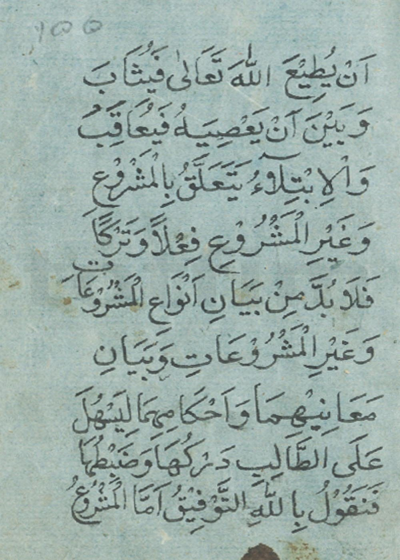 ١٥٥
اَنْ يُطِيْعَ اللّٰهَ تَعَالٰى فَيُثَابَ
وَبَيْنَ اَنْ يَعْصِيَهُ فَيُعَاقَبَ
وَالْاِبْتِلَاۤءُ يَتَعَلَّقُ بِالْمَشْرُوْعِ
وَغَيْرِ الْمَشْرُوْعِ فِعْلًا وَتَرْكًا
فَلَا بُدَّ مِنْ بَيَانِ اَنْوَاعِ الْمَشْرُوْعَاتِ
وَغَيْرِ الْمَشْرُوْعَاتِ وَبَيَانِ
مَعَانِيْهِمَا وَاَحْكَامِهِمَا لِيَسْهُلَ
عَلَى الطَّالِبِ دَرْكُهَا وَضَبْطُهَا
فَنَقُوْلُ بِاللّٰهِ التَّوْفِيْقُ اَمَّا الْمَشْرُوْعُ